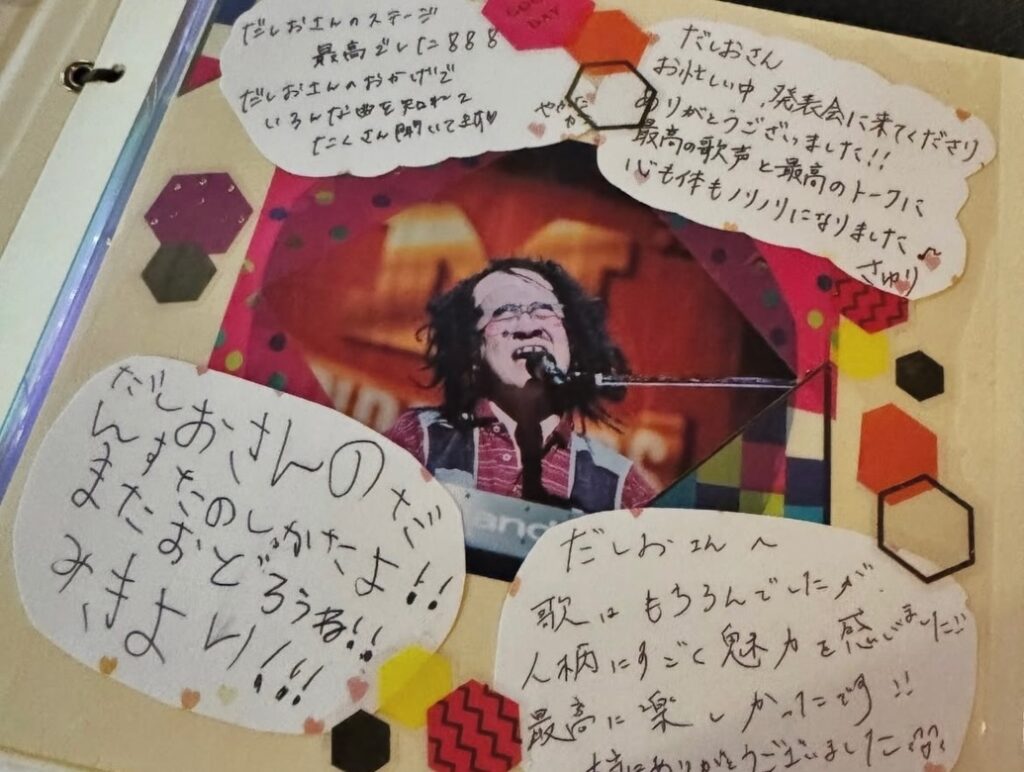 だしおさんのステージ
最高でした888
だしおさんのおかげで
いろんな曲を知れて
たくさん聞いてます♡
GOOD
DAY
だしおさん
お忙しい中、発表会に来てくださり
ありがとうございました!!
最高の歌声と最高のトークに
心も体もノリノリになりました♪
さゆり
だしおさんのだ
んすたのしかたよ!!
またおどろうね!!
みきより!!!
だしおさん〜
歌はもちろんでしたが、
人柄にすごく魅力を感じました!!
最高に楽しかったです!!
ありがとうございました